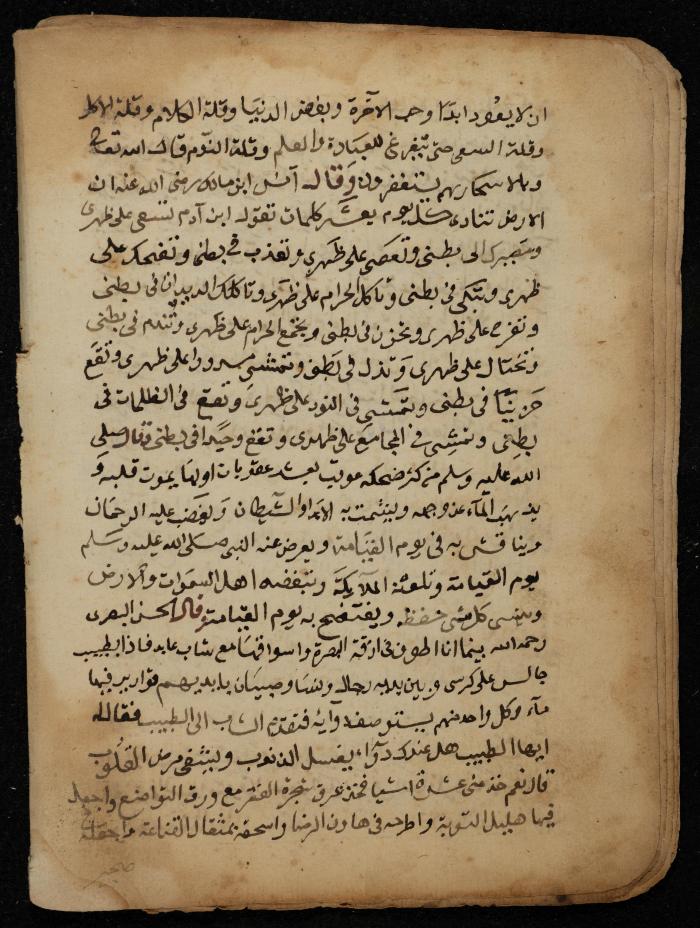 ان لا يعود ابدًا وحب الآخرة وبغض الدنيا وقلة الكلام وقلة الاكل
وقلة السعى حتى تتفرغ للعبادة والعلم وقلة النوم قال الله تعالى
وبالاسحارهم يستغفرون وقال انس ابن مالك رضى الله عنه ان
الارض تنادى كل يوم بعشر كلمات تقول ابن آدم تسعى على ظهرى
ومصيرك الى بطنى وتعصى على ظهرى وتعذب فى بطنى وتضحك على
ظهرى وتبكى فى بطنى وتاكل الحرام على ظهرى وتاكلك الديدان فى بطنى
وتفرح على ظهرى وتحزن فى بطنى وتجمع الحرام على ظهرى وتندم فى بطنى
وتختال على ظهرى وتذل فى بطنى وتمشى مسرورا على ظهرى وتقع
حزينًا فى بطنى وتمشى فى النور على ظهرى وتقع فى الظلمات فى
بطنى وتمشى فى المجامع على ظهرى وتقع وحيدا فى بطنى وقال صلى
الله عليه وسلم من كثر ضحكه عوقب بعشر عقوبات اولها يموت قلبه و
يذهب المآء عن وجهه ويشمت به الشيطان ويغضب عليه الرحمان
ويناقش به فى يوم القيامة ويعرض عنه النبى صلى الله عليه وسلم
يوم القيامة وتلعنه الملآيكة وتبغضه اهل السموات والارض
وينسى كل شى حفظه ويفتضح به يوم القيامة وقال الحسن البصرى
رحمه الله بينما انا اطوف فى ازقة البصرة واسواقها مع شاب عابد فاذا بطبيب
جالس على كرسى وبين يديه رجال ونسا وصبيان بايديهم قوارير فيها
مآء وكل واحد منهم يستوصف دوآئه فتقدم الشاب الى الطبيب فقال له
ايها الطبيب هل عندك دوآء يغسل الذنوب ويشفى مرض القلوب
قال نعم خذ منى عشرة اشيا فخذ عرق شجرة الفقر مع ورق التواضع واجعل
فيها هليلج التوبة واطرحه فى هاون الرضا واسحقه بمثقال القناعة واجعله